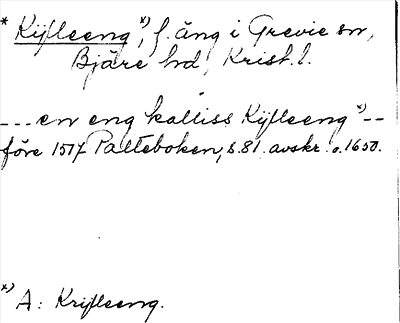 * Kijfleeng x), f. äng i Grevie sn,
Bjäre hd, Krist. l.
--- en eng kalliss Kijfleeng x) --
före 1517 Palteboken, s. 81. avskr. o. 1650.
x) A: Krijfleeng.